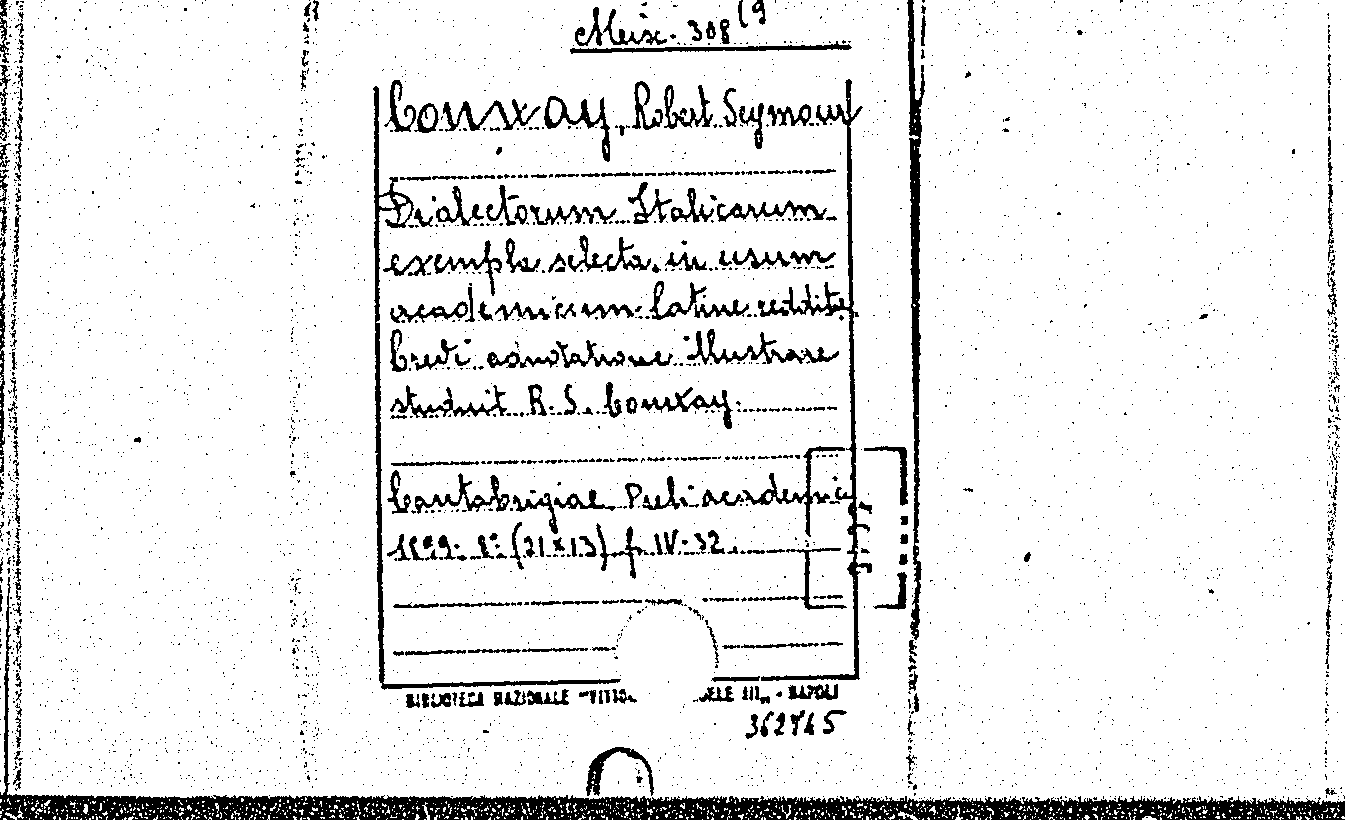 Misc. 308 (9
Conway, Robert Seymour
Dialectorum Italicarum
exempla selecta in usum
academicum latine reddita
brevi adnotatione illustrare
studuit R. S. Conway.
Cantabrigiae Preli academici
1899. 8° (21x13) f. IV-32.
BIBLIOTECA NAZIONALE "VITTO ELE III„ - NAPOLI